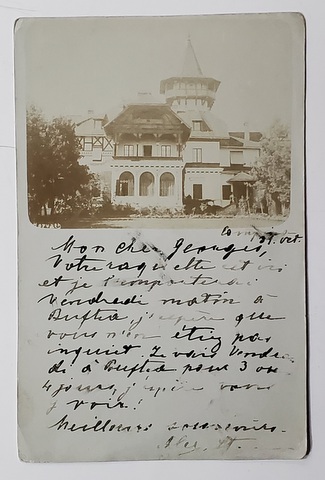 31. Oct.
Mon cher Georges,
Votre raquette est ici
et je l'emporterai
Vendredi matin à
Buftea, j'espère que
vous n'en étiez pas
inquiet. Je vais Vendre-
di à Buftea pour 3 ou
4 jours, j'espère vous
y voir!
Meilleurs souvenirs.
Alex.